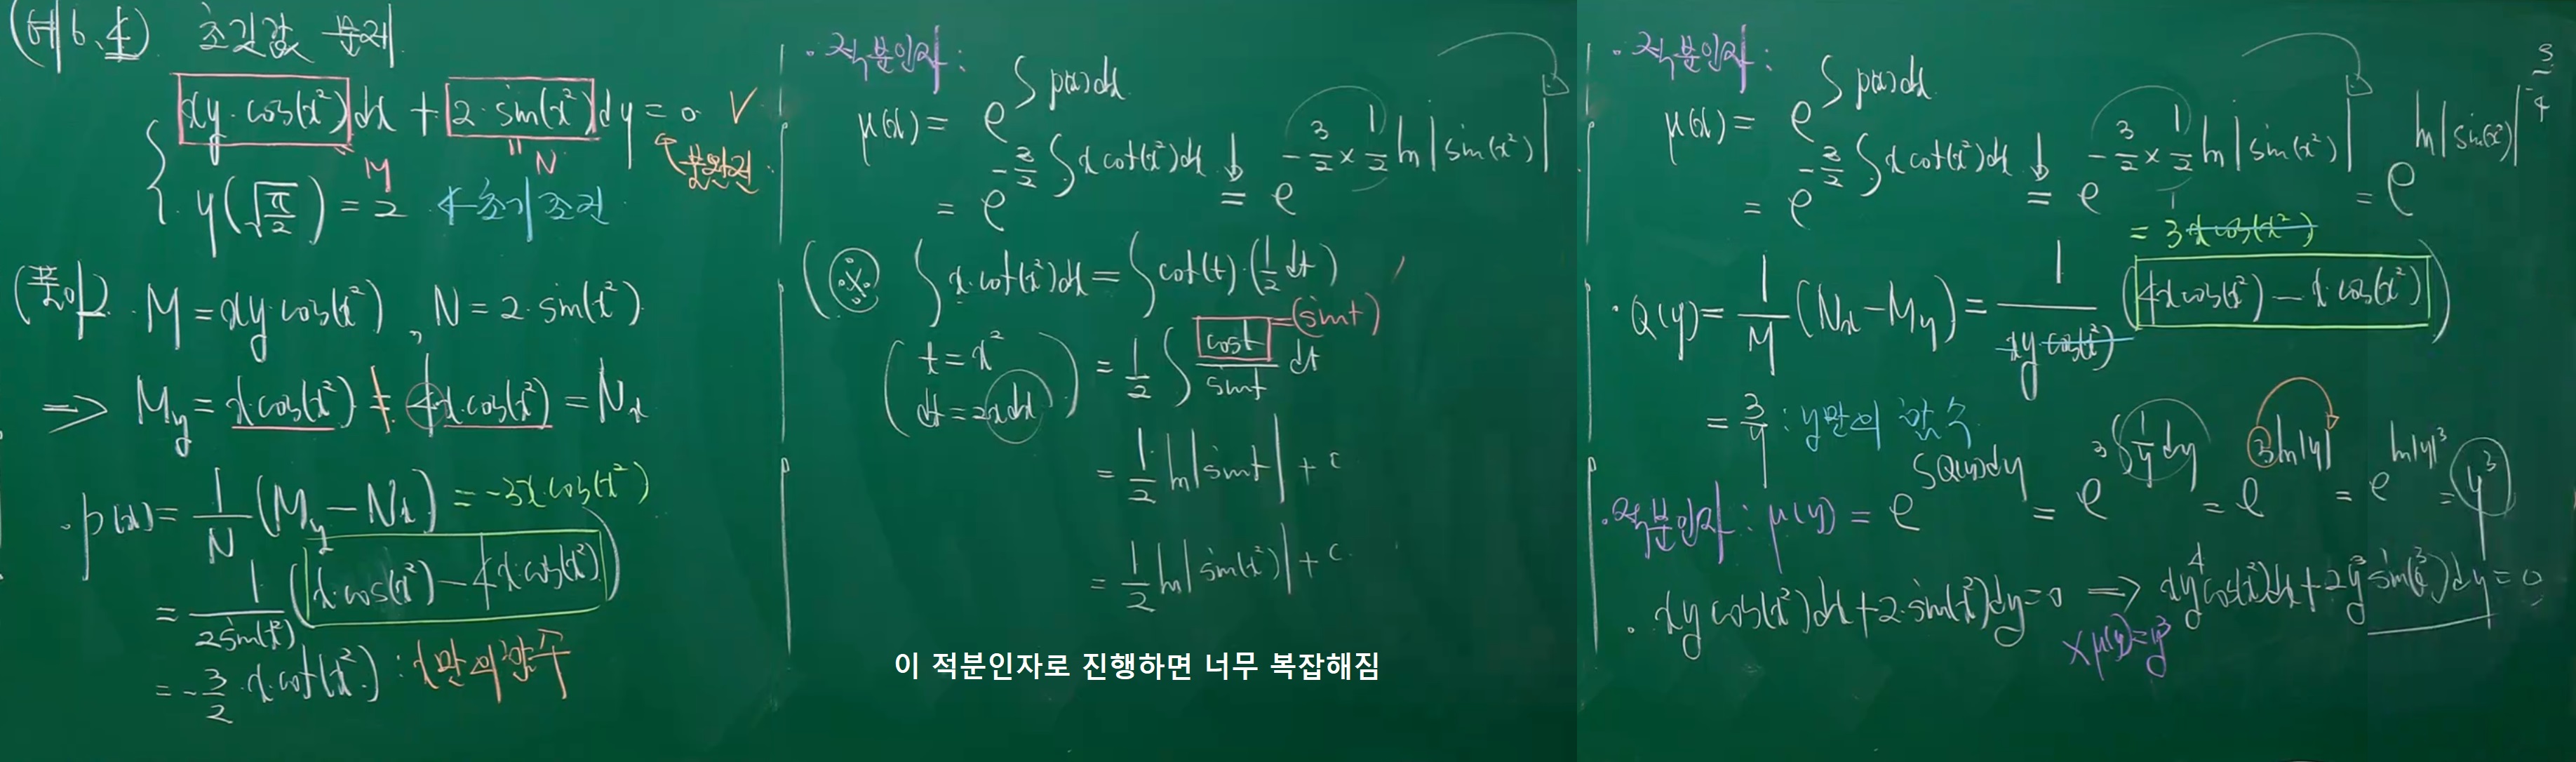 (예6.4) 초깃값 문제
xy·cos(x²)dx + 2·sin(x²)dy = 0 V
" M " N 불완전
y(√(π/2)) = 2 ← 초기조건
(풀이) · M = xy·cos(x²), N = 2·sin(x²)
⇒ M_y = x·cos(x²) ≠ 4x·cos(x²) = N_x
· p(x) = 1/N (M_y − N_x) = −3x·cos(x²)
= 1/(2sin(x²)) (x·cos(x²) − 4x·cos(x²))
= −3/2·x·cot(x²) : x만의 함수
· 적분인자 :
μ(x) = e^{∫p(x)dx}
= e^{−3/2 ∫x cot(x²)dx} = e^{−3/2 × 1/2 ln|sin(x²)|}
(※ ∫x·cot(x²)dx = ∫cot(t)·(1/2 dt)
(t = x²
dt = 2xdx)
= 1/2 ∫ cost/sint dt =(sint)
= 1/2 ln|sint| + c
= 1/2 ln|sin(x²)| + c
이 적분인자로 진행하면 너무 복잡해짐
· 적분인자 :
μ(x) = e^{∫p(x)dx}
= e^{−3/2 ∫x cot(x²)dx} = e^{−3/2 × 1/2 ln|sin(x²)|} = e^{ln|sin(x²)|^{−3/4}}
= 3x cos(x²)
· Q(y) = 1/M (N_x − M_y) = 1/(xy cos(x²)) (4x cos(x²) − x·cos(x²))
= 3/y : y만의 함수
· 적분인자 : μ(y) = e^{∫Q(y)dy} = e^{3∫1/y dy} = e^{3ln|y|} = e^{ln|y|³} = y³
· xy cos(x²)dx + 2·sin(x²)dy = 0 ⇒ xy⁴cos(x²)dx + 2y³sin(x²)dy = 0
×μ(y)=y³